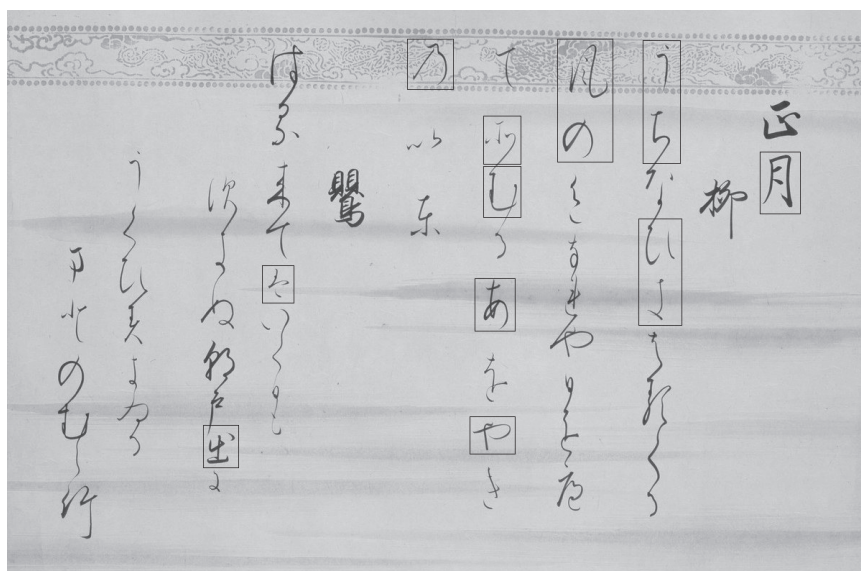 正月
柳
うちなひきはるくる
風のいろなれや日をへ
てそむるあをやき
のいと
鸎
はる来てはいくよも
すきぬ朝戸出に
うくひすきゐる
まとのむら竹